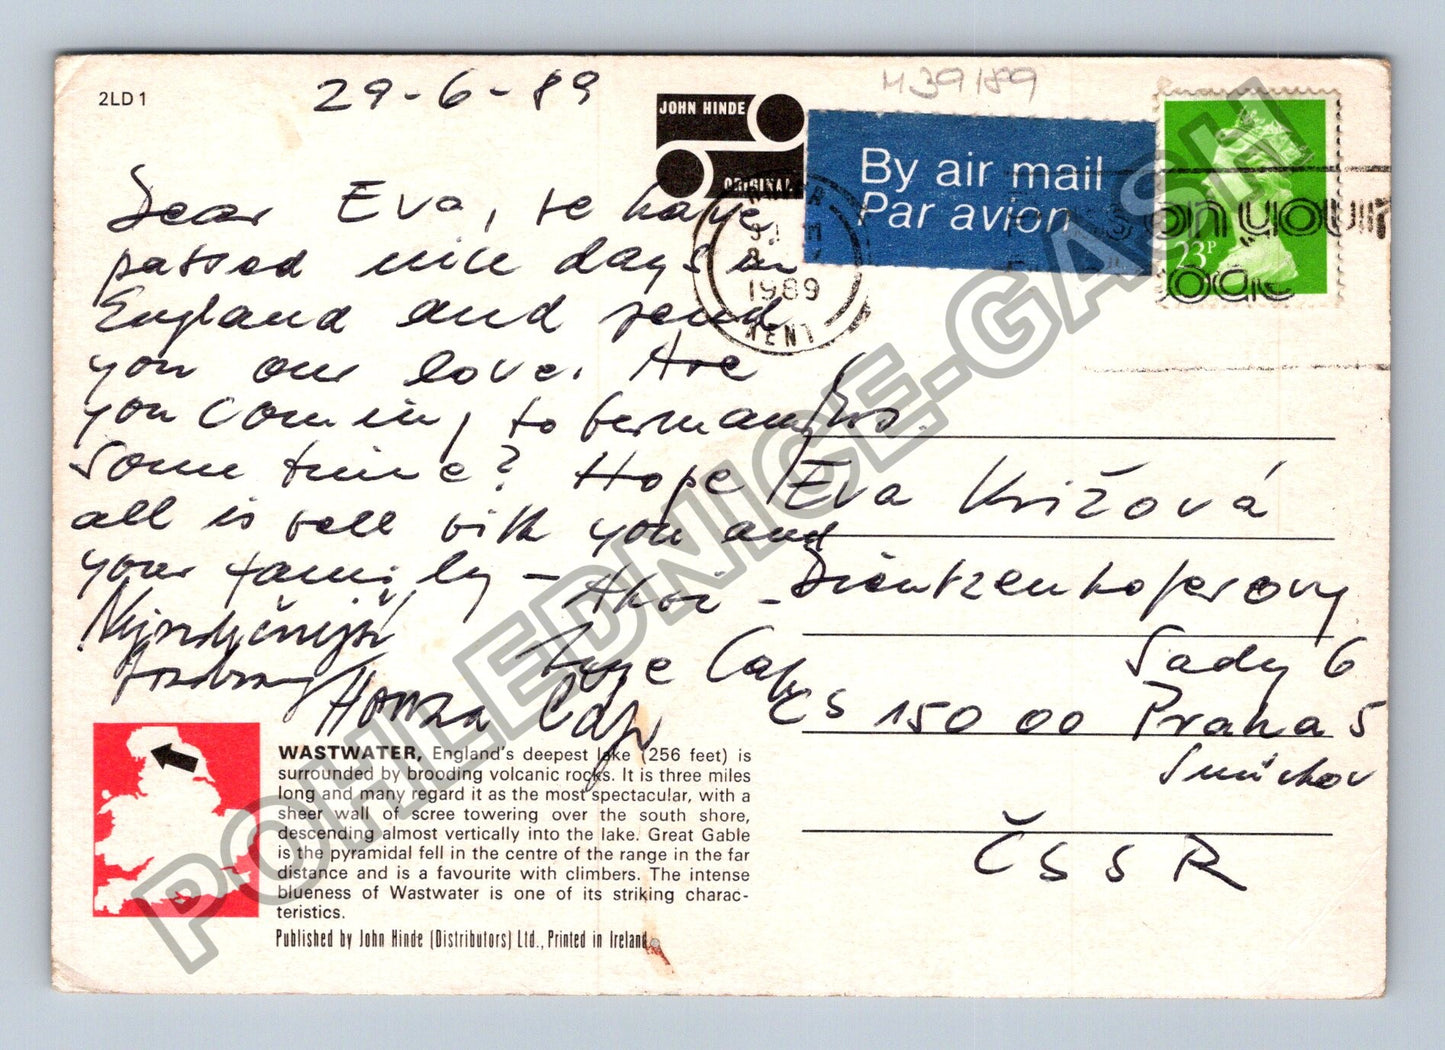 2LD 1
29-6-89
M 39/89
JOHN HINDE
ORIGINAL
By air mail
Par avion
23P
on your
1989
KENT
Dear Eva, we have
passed nice days in
England and send
you our love. Are
you coming to Germany
some time? Hope
all is well with you and
your family – Ahoi –
Nejsrdečnější
pozdravy
Honza Cap
Mrs.
Eva Križová
Dientzenhoferovy
Sady 6
CS 150 00 Praha 5
Smíchov
ČSSR
WASTWATER, England's deepest lake (256 feet) is
surrounded by brooding volcanic rocks. It is three miles
long and many regard it as the most spectacular, with a
sheer wall of scree towering over the south shore,
descending almost vertically into the lake. Great Gable
is the pyramidal fell in the centre of the range in the far
distance and is a favourite with climbers. The intense
blueness of Wastwater is one of its striking charac-
teristics.
Published by John Hinde (Distributors) Ltd., Printed in Ireland.
POHLEDNICE-GASH